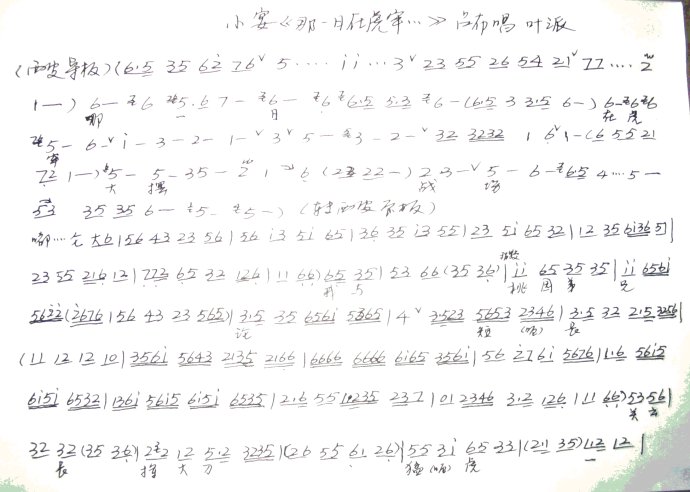 小宴《那一日在虎牢…》吕布唱 叶派
(西皮导板)(6·5 35 62 76ˇ 5···· i i ···3ˇ 23 55 26 54 21ˇ 77···· 2
1—) 6— 6 5·6 7— 6— 6 6·5 5·3 6—(6·5 3 3·5 6—) 6—6 6
哪 一 日 在 虎
5— 6—ˇi—3—2—1—ˇ3ˇ5—3—2—ˇ32 3232 1 6ˇ1—(6 55 21
牢
72 1—) 5— 5—35—2 1 6 (23 22—) 2 3—ˇ5—6—6·5 4····5—
大 摆 战 场
53 35 35 6— 5— 5—) (转西皮原板)
嘟···仓 大 6|56 43 23 56|56 i3 5i 65|36 35 i3 55|23 5i 65 32|12 35 6i36 5|
23 55 216 12|772 65 32 126|11 66)65 35|53 66(35 36)|ii 65 35 35|ii 656i
刘 与 桃 园 弟 兄
5622(2676|56 43 23 565)|3·5 35 656i 5365|4ˇ 3523 5653 2346|3·5 32 215 3256|
论 短 (呐) 长
(11 12 12 10|356i 5643 2135 2166|6666 6666 6i65 356i|56 276i 5676|1·6 5615
6i5i 6532|136i 5615 6i5i 6535|216 55 10235 237|01 2346 3·12 126|11 66)53 56|
关 云
32 32(35 36)|22 12 5·2 3235|(26 55 61 26)|55 3i 65 33|(21 35)12 12|
长 挥 大 刀 猛(呐) 虎